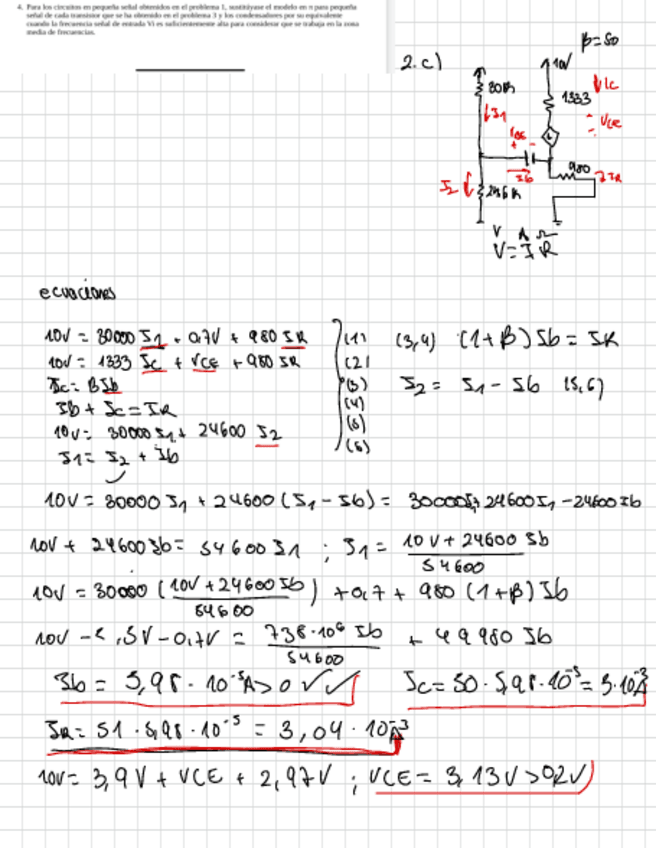 4. Para los circuitos en pequeña señal obtenidos en el problema 1, sustitúyase el modelo en π para pequeña
señal de cada transistor que se ha obtenido en el problema 3 y los condensadores por su equivalente
cuando la frecuencia señal de entrada Vi es suficientemente alta para considerar que se trabaja en la zona
media de frecuencias.
2.c)
β=50
10V
30K
IC
1333
I1
VCE
+ -
Ib
980
IR
I2
24,6K
V A Ω
V=IR
ecuaciones
10V = 30000 I1 + 0,7V + 980 IR (1)
10V = 1333 Ic + VCE + 980 IR (2)
Ic = βIb (3)
Ib + Ic = IR (4)
10V = 30000 I1 + 24600 I2 (5)
I1 = I2 + Ib (6)
(3,4) (1+β) Ib = IR
I2 = I1 - Ib (5,6)
10V = 30000 I1 + 24600 (I1 - Ib) = 30000I1+24600I1 - 24600Ib
10V + 24600 Ib = 54600 I1 ; I1 = 10V + 24600 Ib / 54600
10V = 30000 (10V + 24600 Ib / 54600) + 0,7 + 980 (1+β) Ib
10V - 5,5V - 0,7V = 738·10⁶ Ib / 54600 + 49980 Ib
Ib = 5,98 · 10⁻⁵A > 0 ✓✓
Ic = 50 · 5,98·10⁻⁵ = 3·10⁻³A
IR = 51 · 5,98·10⁻⁵ = 3,04 · 10⁻³A
10V = 3,9V + VCE + 2,97V ; VCE = 3,13V > 0,2V